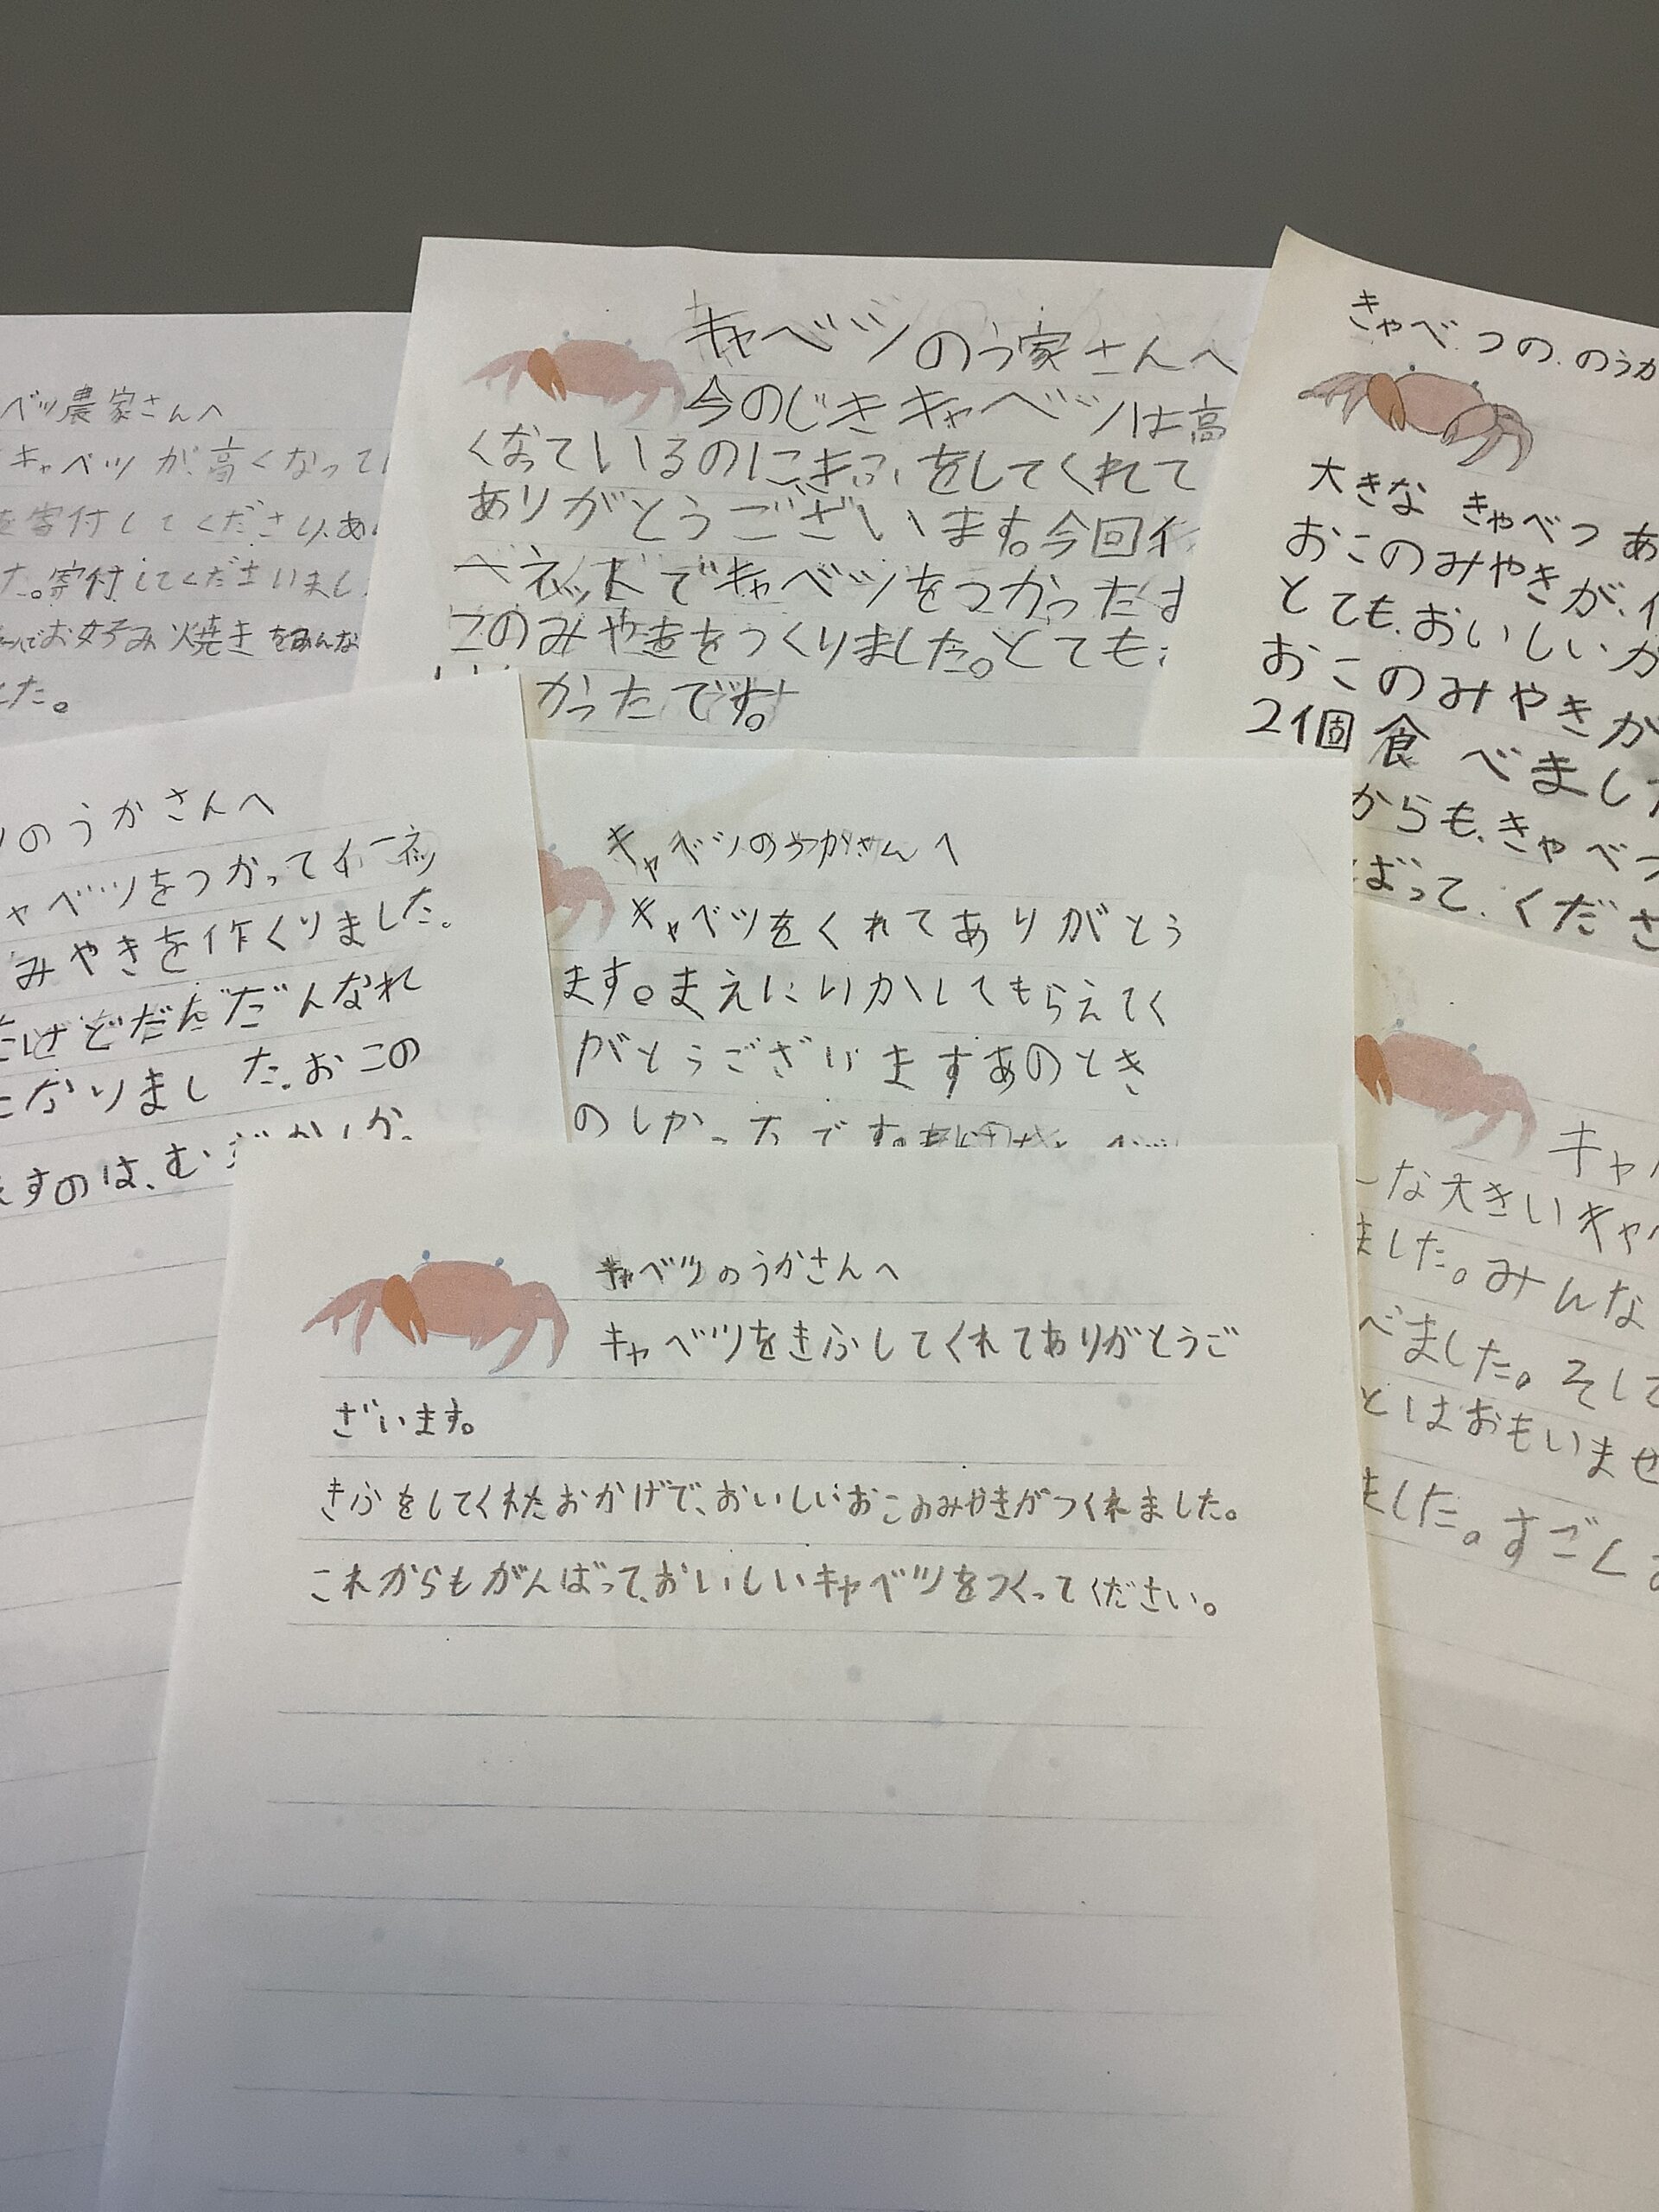 ベツ農家さんへ
キャベツが高くなって
を寄付してくださり、あ
た。寄付してくださいまし
でお好み焼きをみんな
した。
キャベツのう家さんへ
今のじきキャベツは高
くなっているのにきふをしてくれて
ありがとうございます。今回イ
ベネットでキャベツをつかったお
このみやきをつくりました。とても
かったです。
きゃべつの、のうか
大きな きゃべつ あ
おこのみやきが、イ
とても、おいしいか
おこのみやきが
2個食べました
からも、きゃべつ
ばって、くださ
ツのうかさんへ
ャベツをつかってイベネッ
みやきを作くりました。
たけどだんだんなれ
になりました。おこの
すのは、むずかしか
キャベツのうかさんへ
キャベツをくれてありがとう
ます。まえにいかしてもらえてく
がとうございますあのとき
のしかったです。
キャベツのうかさんへ
キャベツをきふしてくれてありがとうご
ざいます。
きふをしてくれたおかげで、おいしいおこのみやきがつくれました。
これからもがんばって、おいしいキャベツをつくってください。
キャ
な大きいキャ
ました。みんな
べました。そして
とはおもいませ
ました。すごく